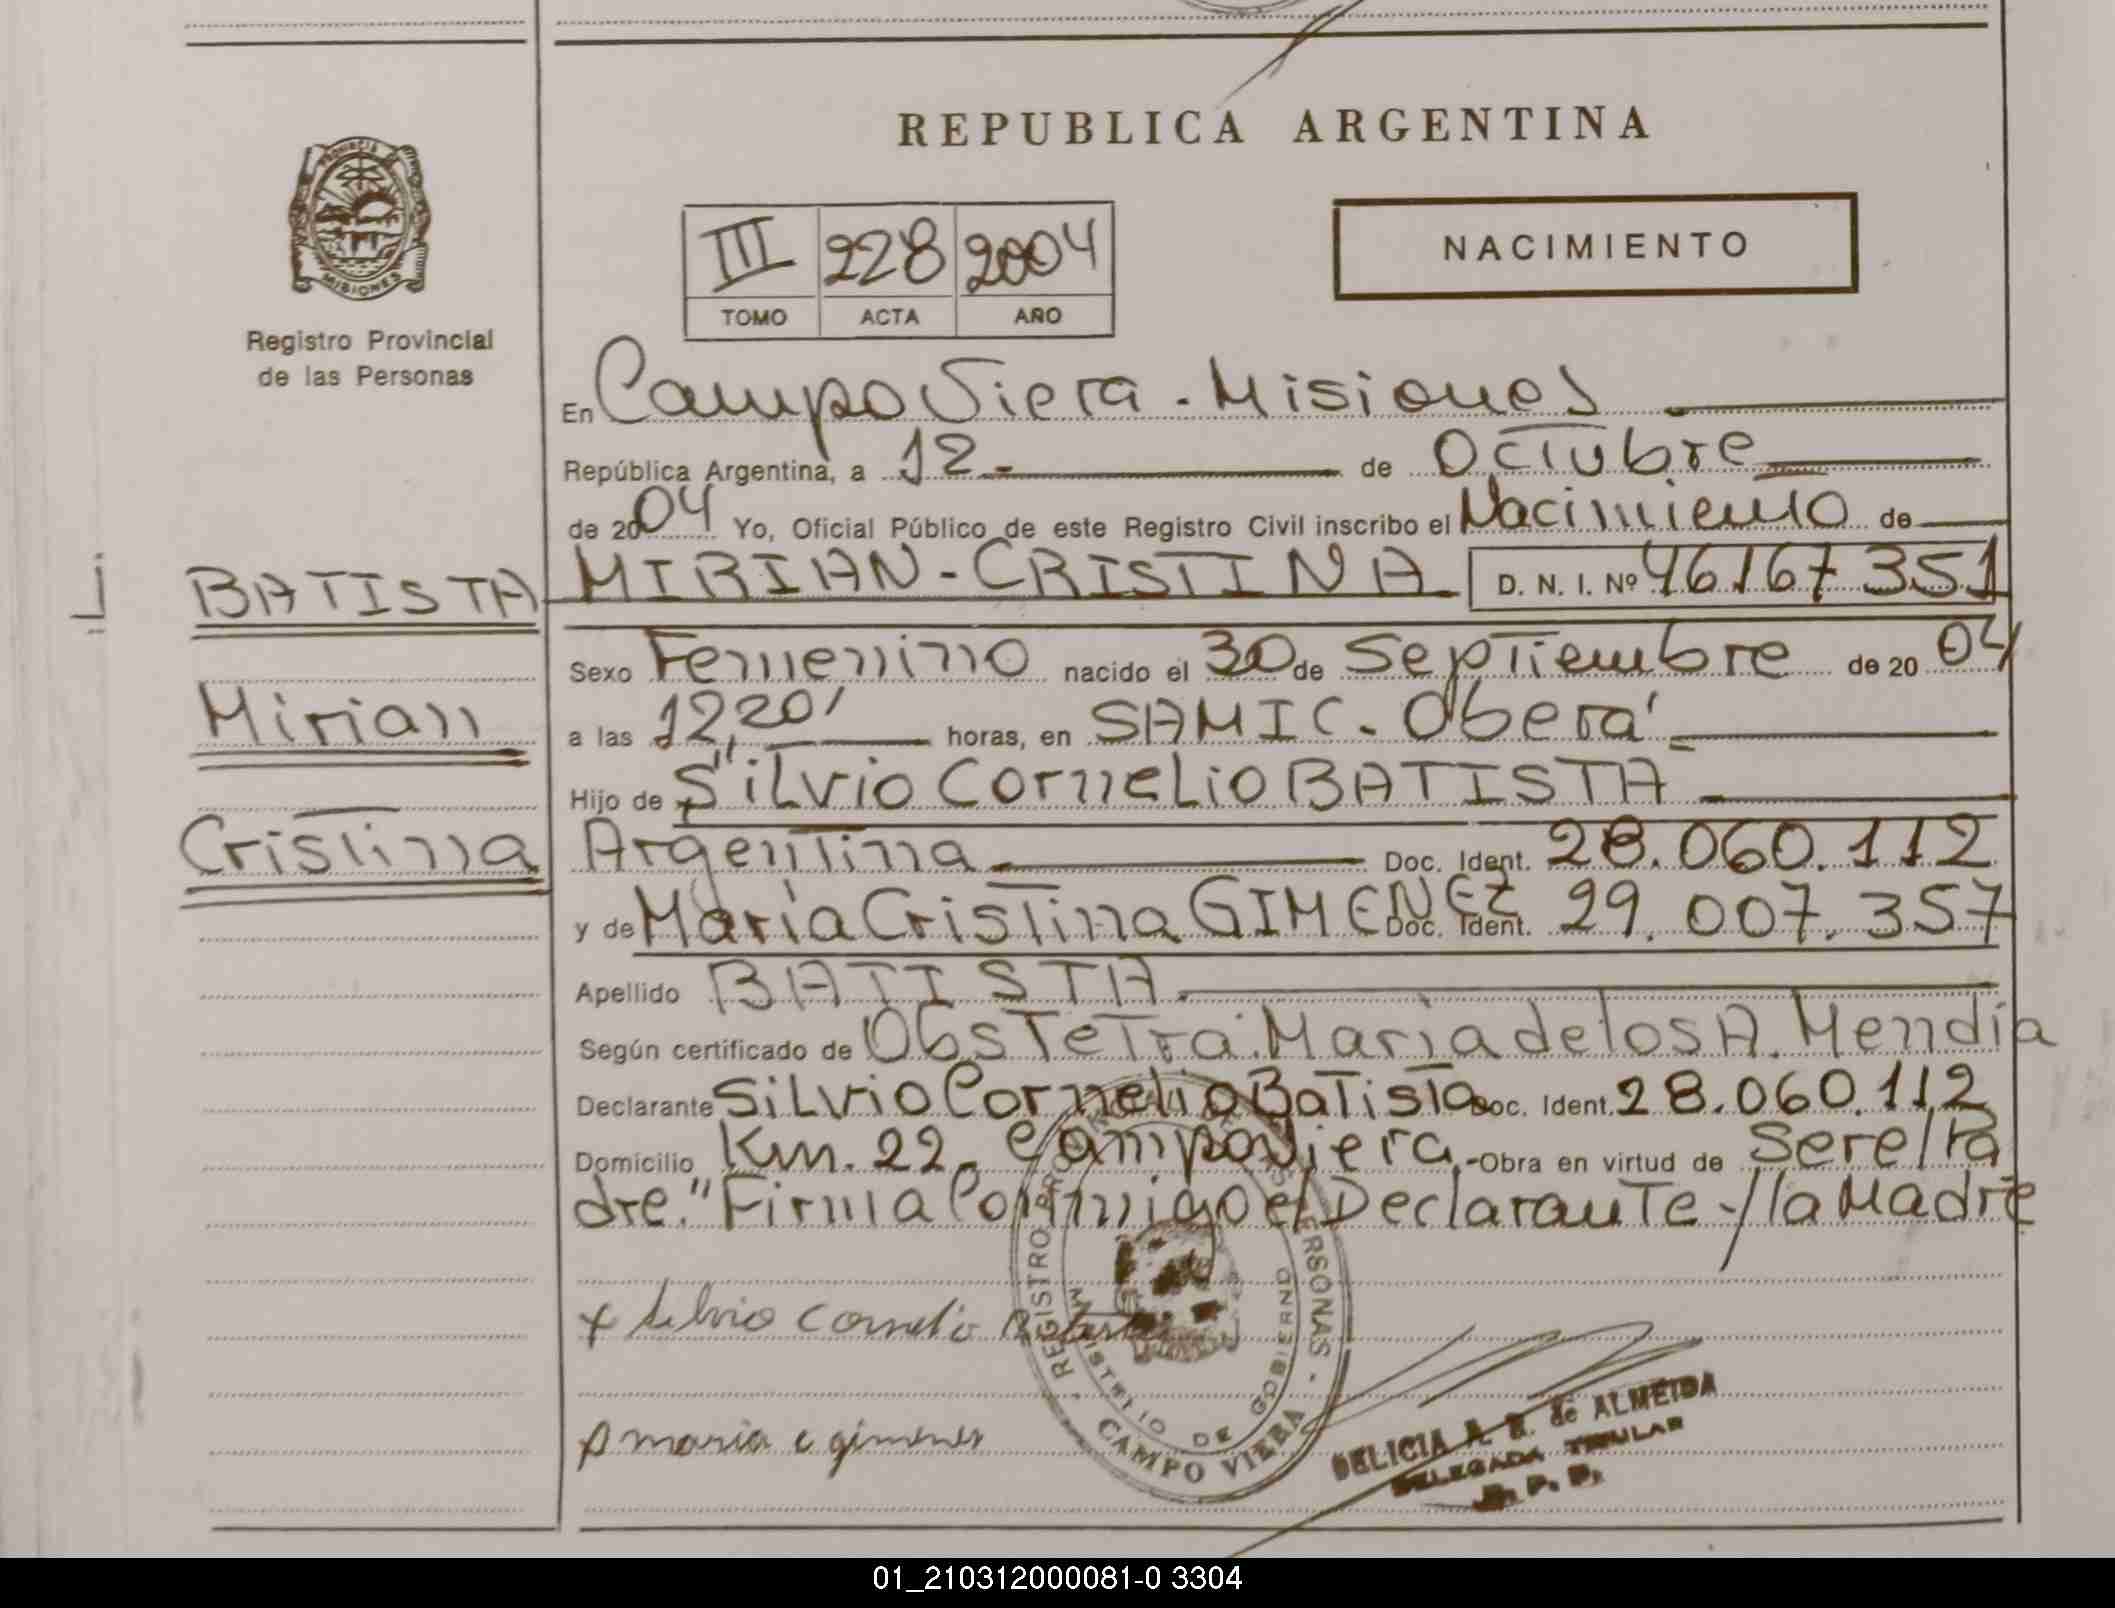 REPUBLICA ARGENTINA
PROVINCIA DE
MISIONES
Registro Provincial
de las Personas
III 228 2004
TOMO ACTA AÑO
NACIMIENTO
En Campo Viera - Misiones
República Argentina, a 12 - de Octubre
de 2004 Yo, Oficial Público de este Registro Civil inscribo el Nacimiento de
BATISTA MIRIAN - CRISTINA D. N. I. Nº 46167351
Sexo Femenino nacido el 30 de Septiembre de 2004
Mirian
a las 12,20' horas, en SAMIC - Oberá
Hijo de Silvio Cornelio BATISTA
Cristina
Argentina Doc. Ident. 28.060.112
y de María Cristina GIMENEZ Doc. Ident. 29.007.357
Apellido BATISTA
Según certificado de Obstetra: María de los A. Mendía
Declarante Silvio Cornelio Batista Doc. Ident. 28.060.112
Domicilio Km. 22 - Campo Viera - Obra en virtud de Ser el Pa
dre." Firma Conmigo el Declarante - / la Madre
x Silvio Cornelio Batista
maria c gimenes
REGISTRO PROVINCIAL DE LAS PERSONAS
MINISTERIO DE GOBIERNO
CAMPO VIERA
DELICIA A. R. de ALMEIDA
DELEGADA TITULAR
R. P. P.
01_210312000081-0 3304